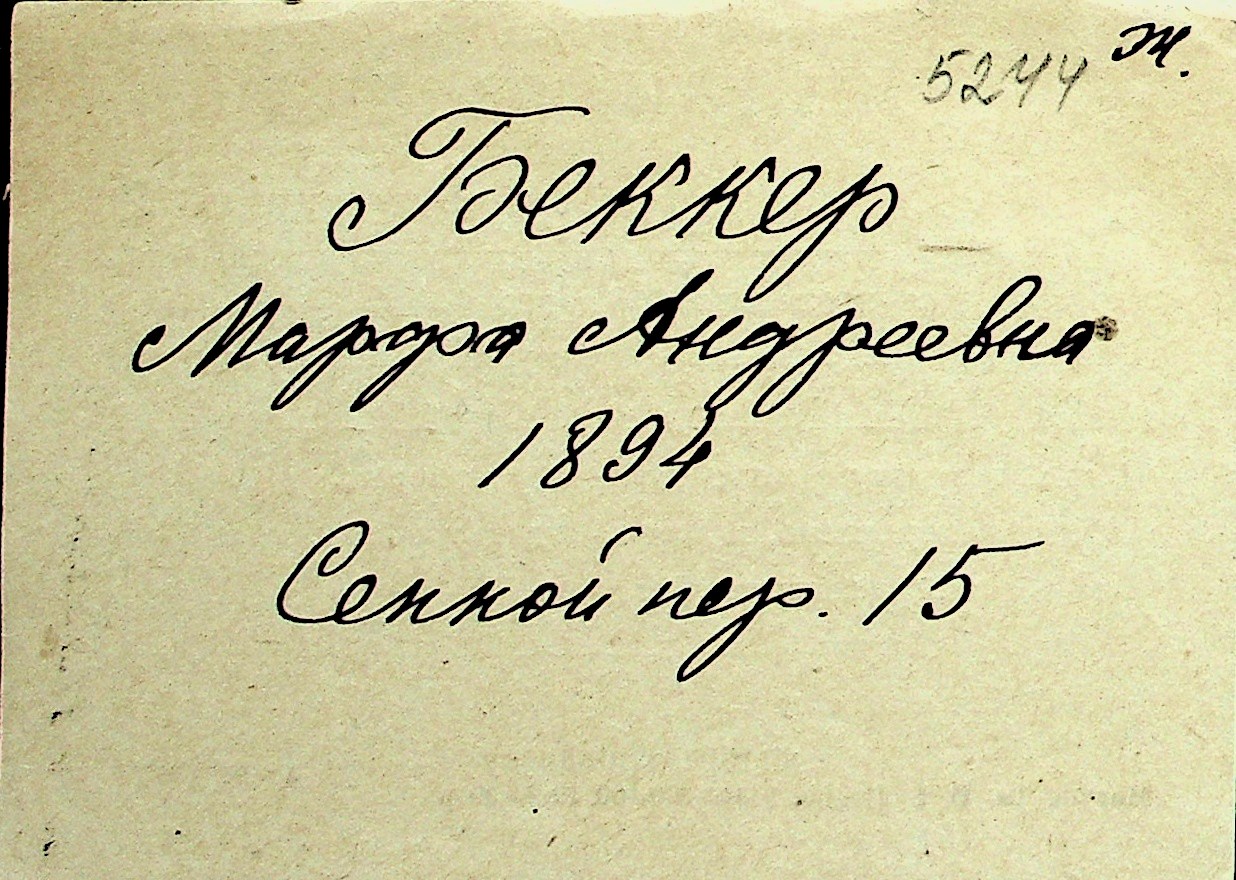 5244 ж.
Беккер
Марфа Андреевна
1894
Сенной пер. 15